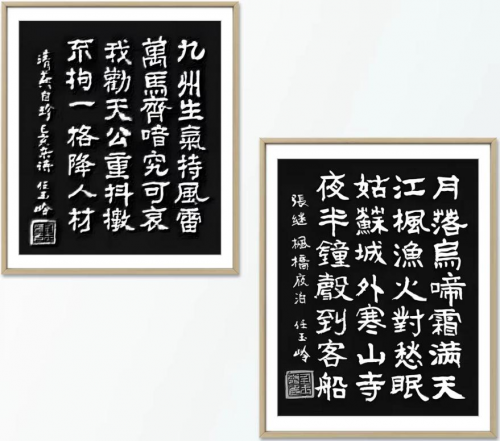 九州生氣恃風雷
萬馬齊喑究可哀
我勸天公重抖擻
不拘一格降人材
清龔自珍己亥杂诗 任玉岭
月落烏啼霜满天
江楓漁火對愁眠
姑蘇城外寒山寺
夜半鐘聲到客船
張継楓橋夜泊 任玉岭